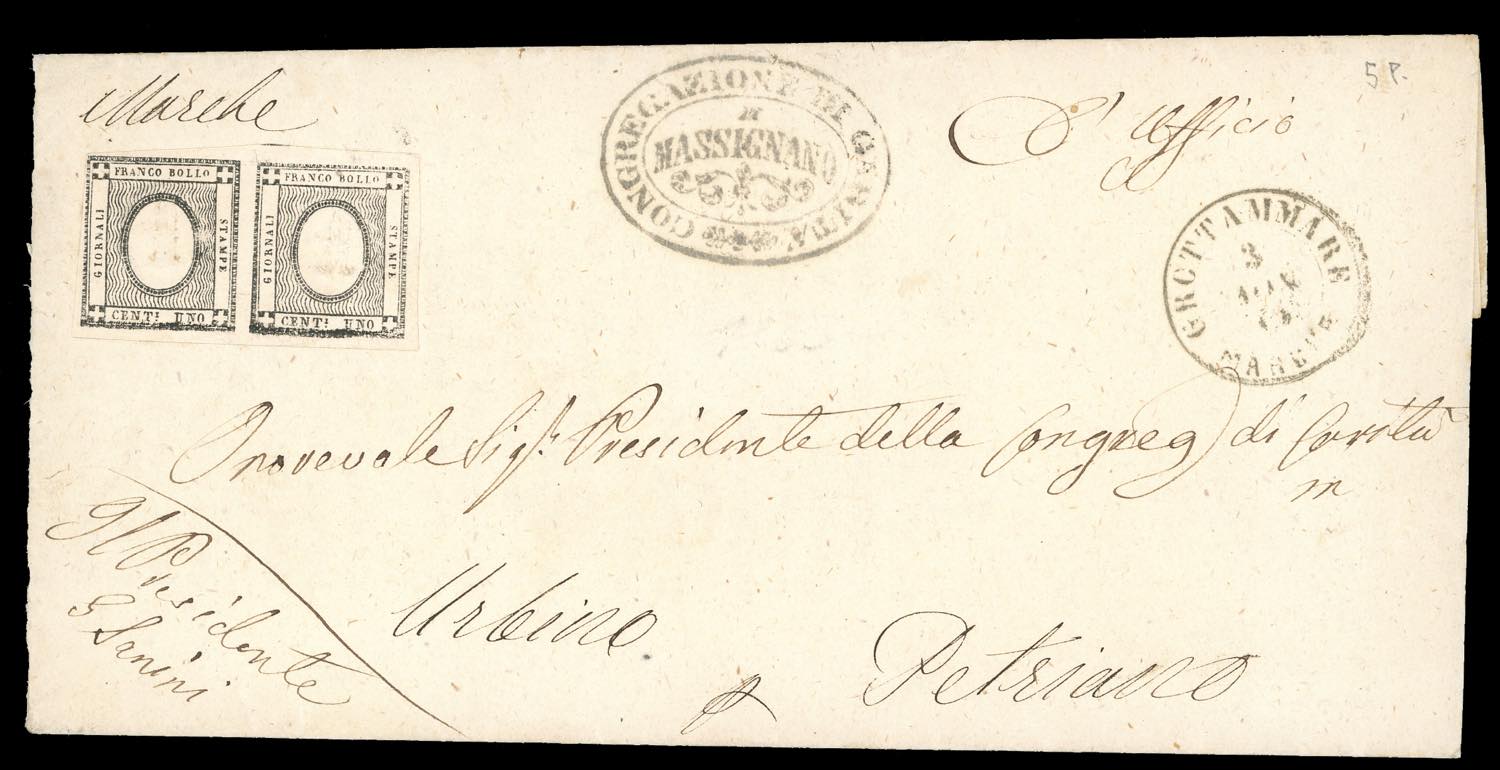 Marche
5 P.
CONGREGAZIONE DI CARITA
DI
MASSIGNANO
D' Ufficio
FRANCO BOLLO
GIORNALI
STAMPE
CENT: UNO
FRANCO BOLLO
GIORNALI
STAMPE
CENT: UNO
GROTTAMMARE
3
MARCHE
Onorevole Sigr. Presidente della Congreg) di Carità
in
Il Presidente
G Sanini
Urbino
p
Petriano